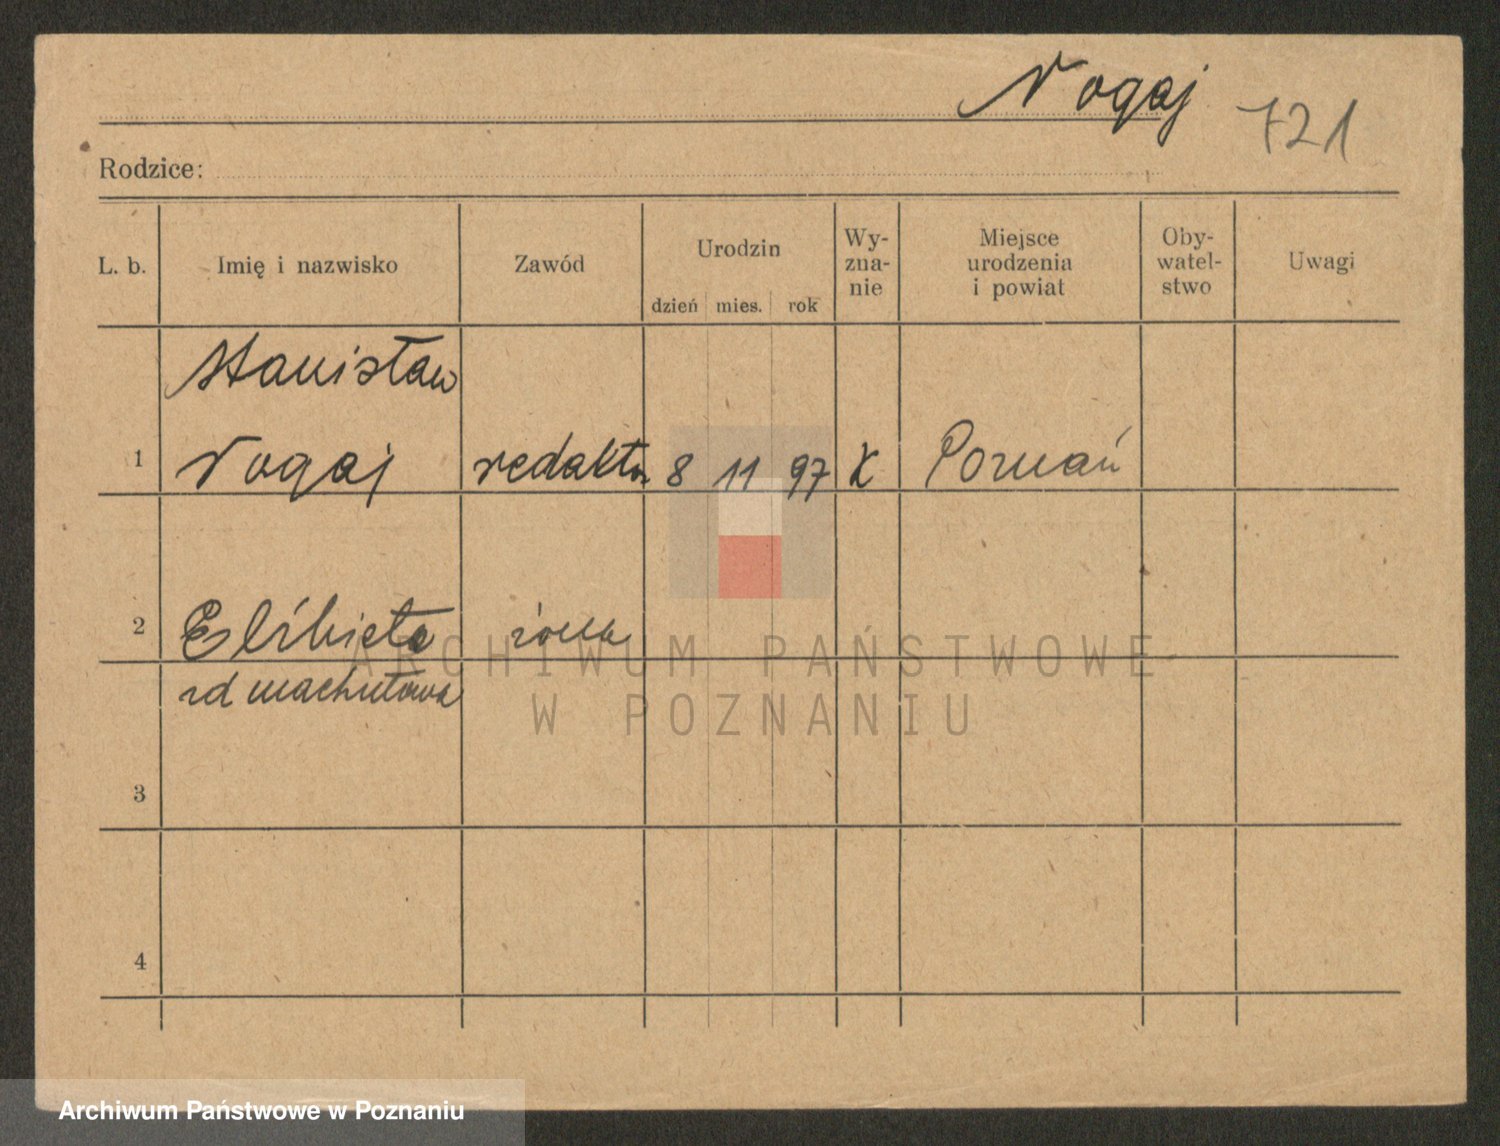 Nogaj
721
Rodzice:
L. b. Imię i nazwisko Zawód Urodzin dzień mies. rok Wy-zna-nie Miejsce urodzenia i powiat Oby-watel-stwo Uwagi
Stanisław
1 Nogaj redaktor 8 11 97 K Poznań
2 Elżbieta żona
zd
3
4
ARCHIWUM PAŃSTWOWE
W POZNANIU
Archiwum Państwowe w Poznaniu